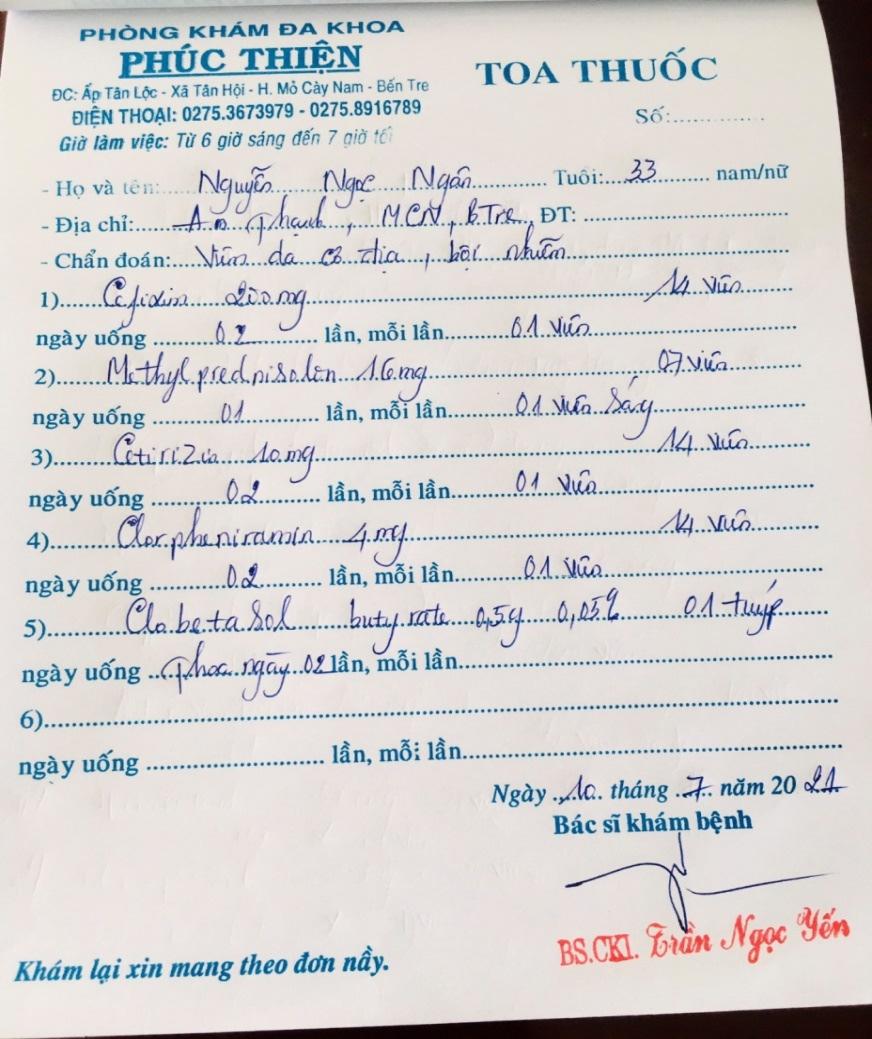 PHÒNG KHÁM ĐA KHOA
PHÚC THIỆN
ĐC: Ấp Tân Lộc - Xã Tân Hội - H. Mỏ Cày Nam - Bến Tre
ĐIỆN THOẠI: 0275.3673979 - 0275.8916789
Giờ làm việc: Từ 6 giờ sáng đến 7 giờ tối
TOA THUỐC
Số:..............
- Họ và tên: Nguyễn Ngọc Ngân Tuổi: 33 nam/nữ
- Địa chỉ: An Thạnh, MCN, BTre, ĐT:
- Chẩn đoán: Viêm da cơ địa, bội nhiễm
1) Cefixim 200mg 14 viên
ngày uống 02 lần, mỗi lần 01 viên
2) Methylprednisolon 16mg 07 viên
ngày uống 01 lần, mỗi lần 01 viên sáng
3) Cetirizin 10mg 14 viên
ngày uống 02 lần, mỗi lần 01 viên
4) Clorpheniramin 4mg 14 viên
ngày uống 02 lần, mỗi lần 01 viên
5) Clobetasol butyrate 0,5g 0,05% 01 tuýp
ngày uống Thoa ngày 02 lần, mỗi lần
6)
ngày uống lần, mỗi lần
Ngày 10 tháng 7 năm 2021
Bác sĩ khám bệnh
BS.CKI. Trần Ngọc Yến
Khám lại xin mang theo đơn nầy.